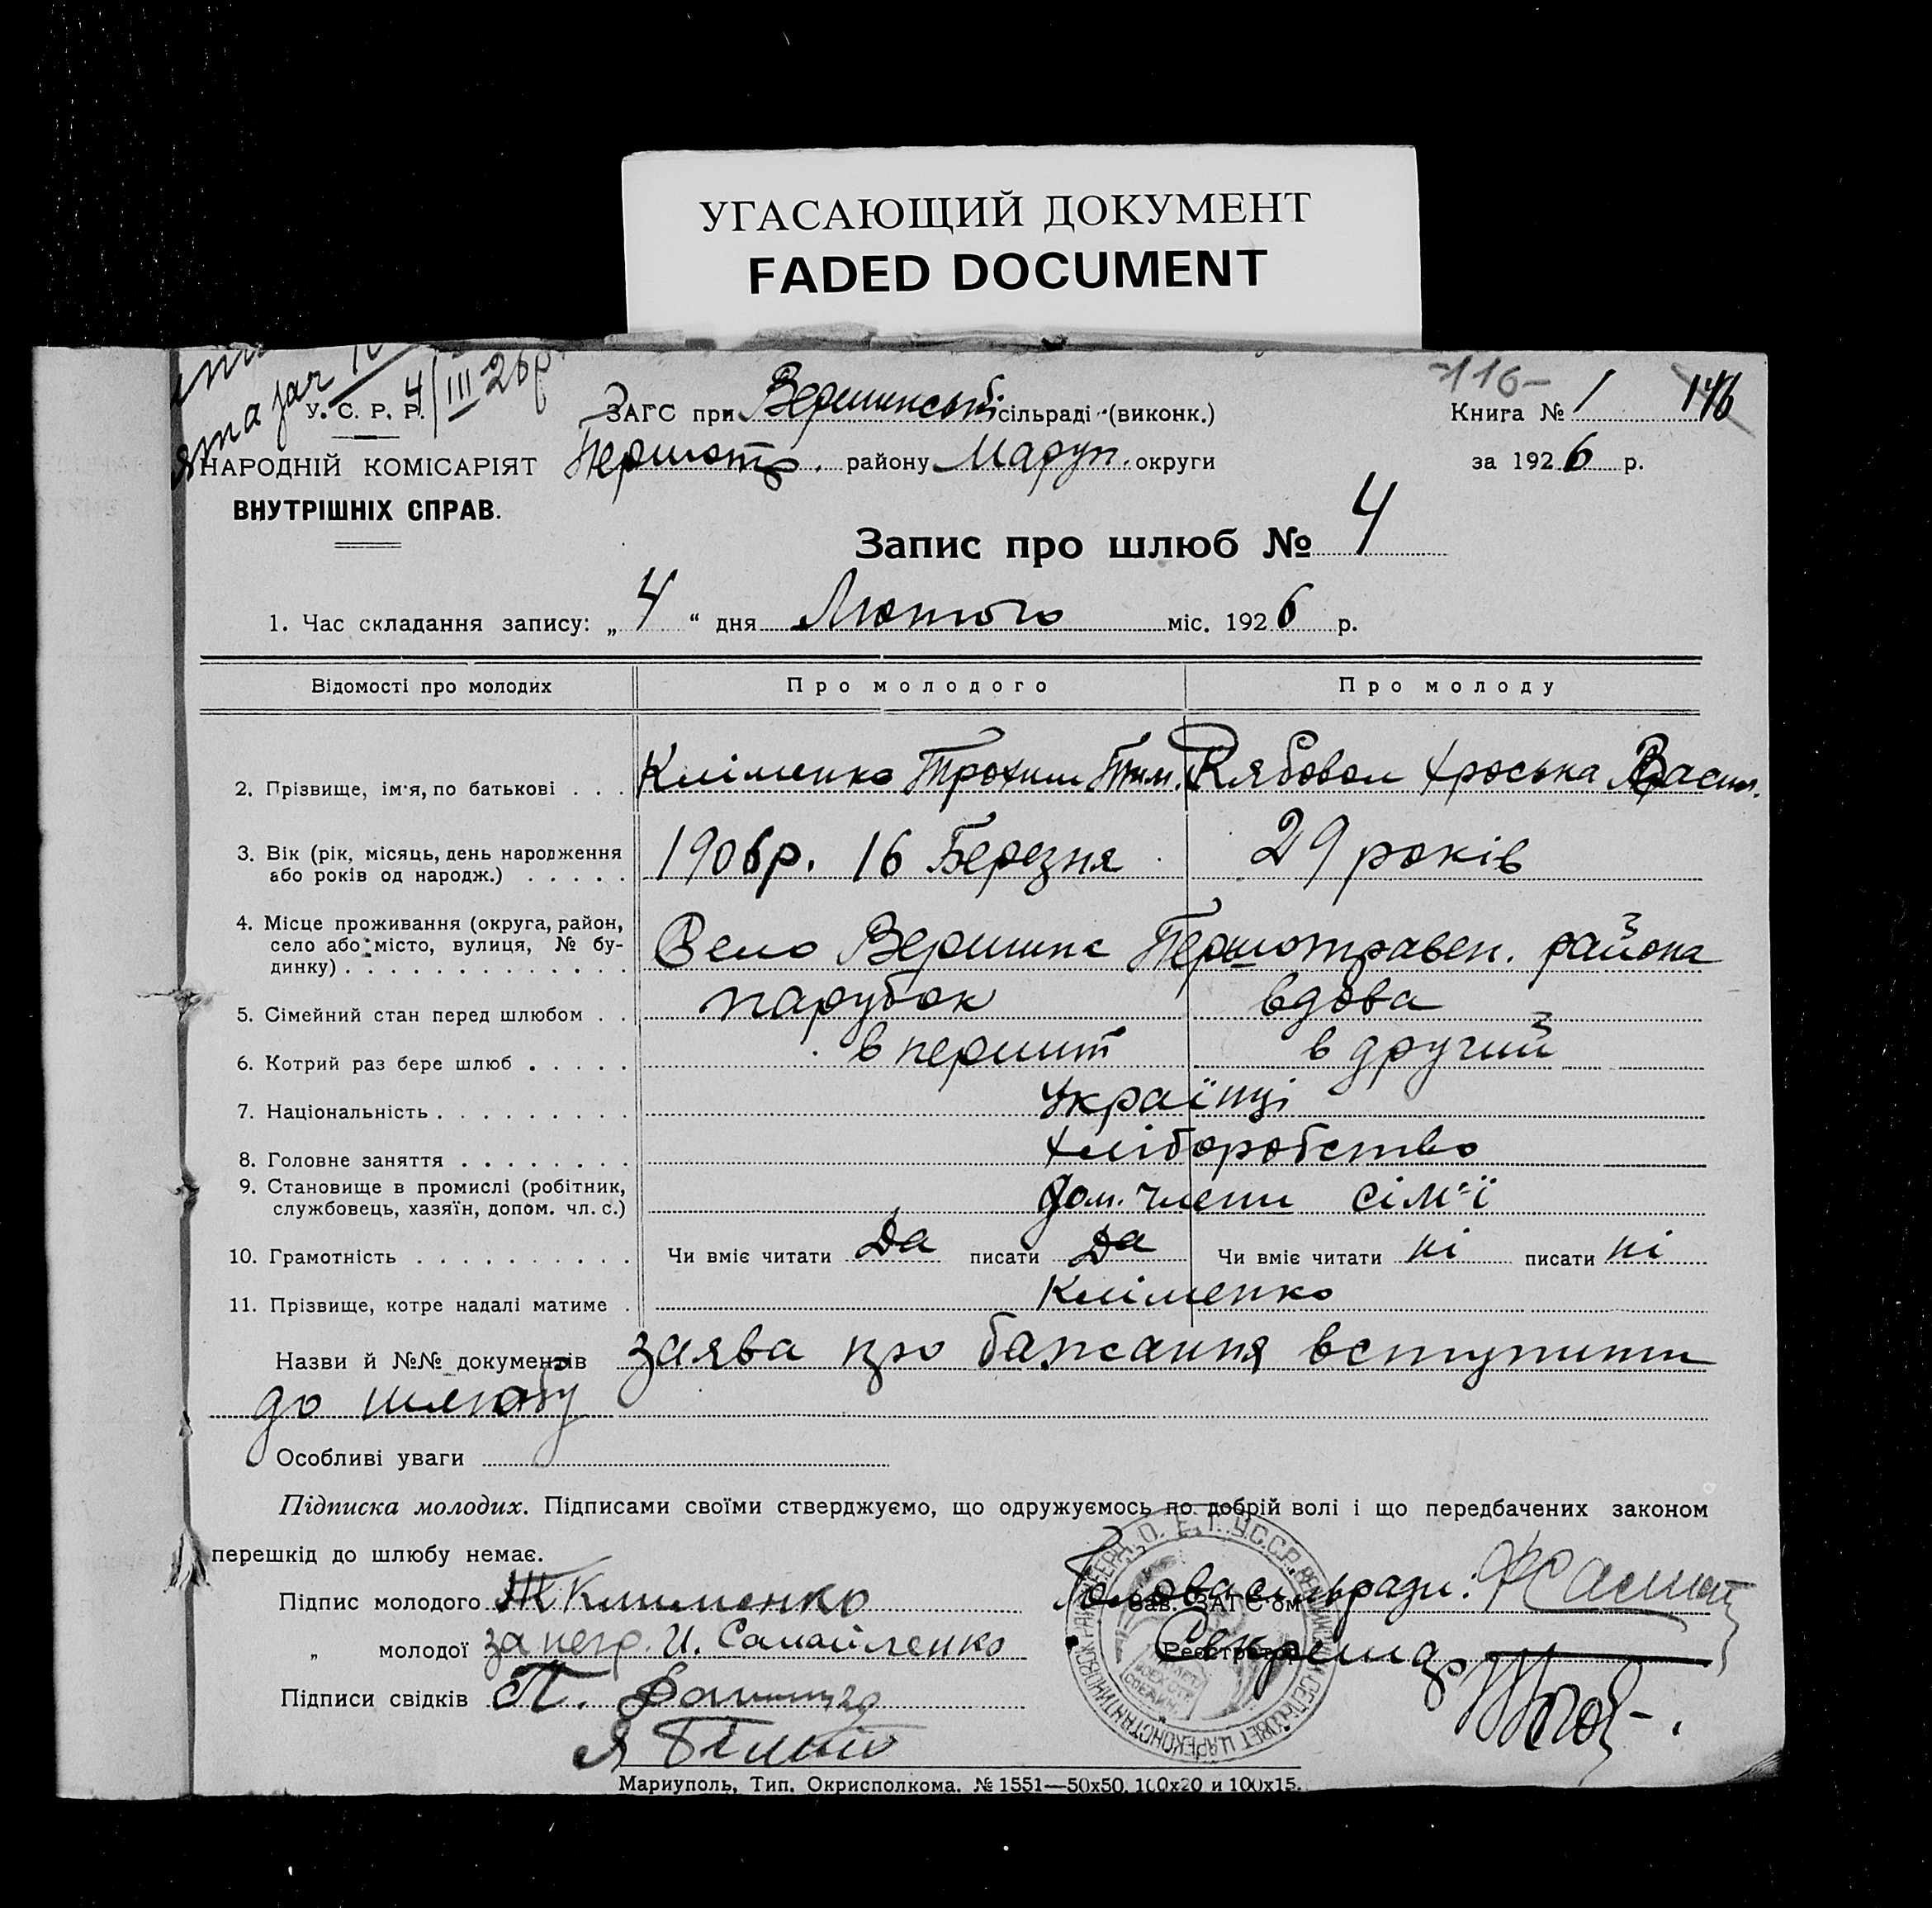 УГАСАЮЩИЙ ДОКУМЕНТ
FADED DOCUMENT
4/III 26р.
-116-
У. С. Р. Р.
ЗАГС при Вершинській сільраді (виконк.)
Книга № 1
146
НАРОДНІЙ КОМІСАРІЯТ
Першотр. району Маруп. округи
за 1926 р.
ВНУТРІШНІХ СПРАВ.
Запис про шлюб № 4
1. Час складання запису: „4“ дня Лютого міс. 1926 р.
Відомості про молодих Про молодого Про молоду
2. Прізвище, ім'я, по батькові . . . Кліменко Трохим Тим. Рябовол Хроська Васил.
3. Вік (рік, місяць, день народження
або років од народж.) . . . . . 1906р. 16 Березня 29 років
4. Місце проживання (округа, район,
село або місто, вулиця, № бу-
динку) . . . . . . . . . . . . . . Село Вершина Першотравен. района
5. Сімейний стан перед шлюбом . . парубок вдова
6. Котрий раз бере шлюб . . . . . в перший в другий
7. Національність . . . . . . . . . Українці
8. Головне заняття . . . . . . . . хліборобство
9. Становище в промислі (робітник,
службовець, хазяїн, допом. чл. с.) дом. члени сім'ї
10. Грамотність . . . . . . . . . . Чи вміє читати Да писати Да Чи вміє читати ні писати ні
11. Прізвище, котре надалі матиме . Кліменко
Назви й №№ документів заява про бажання вступити
до шлюбу
Особливі уваги
Підписка молодих. Підписами своїми стверджуємо, що одружуємось по добрій волі і що передбачених законом
перешкід до шлюбу немає.
Підпис молодого Т Клименко
Голова сільради:
Зав. ЗАГС'ом
„ молодої за негр. И. Самойленко
Реєстратор
Секретар
Підписи свідків П.
Мариуполь, Тип. Окрисполкома. № 1551—50х50, 100х20 и 100х15.